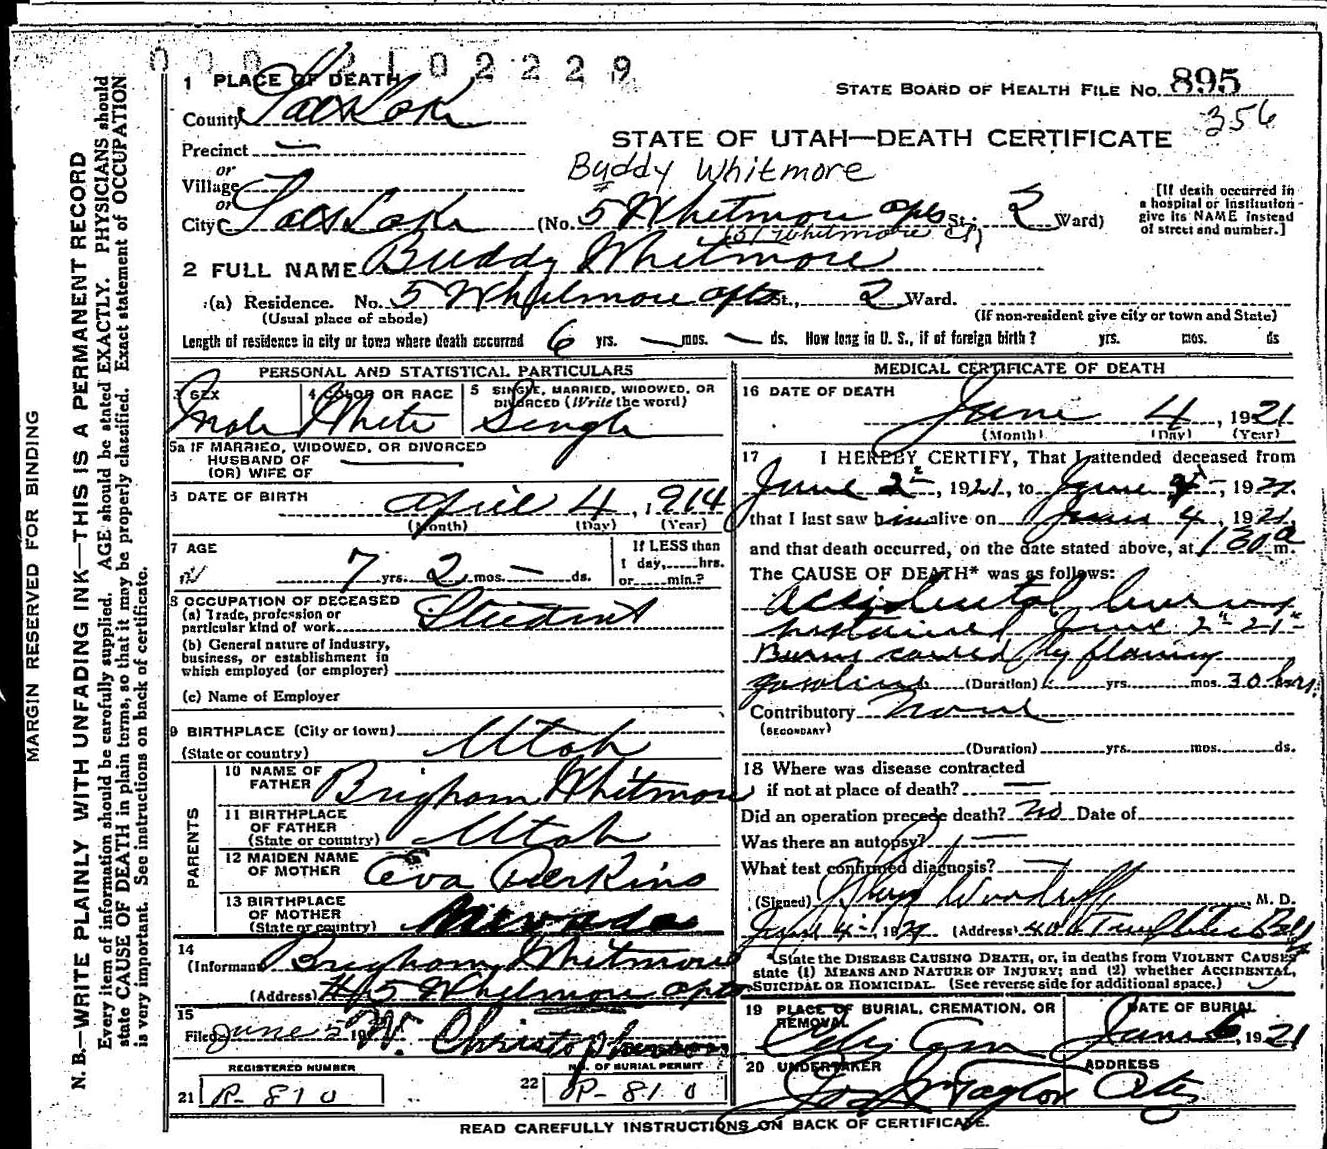 0002102229
1 PLACE OF DEATH
County Salt Lake
STATE BOARD OF HEALTH FILE NO. 895
356
STATE OF UTAH—DEATH CERTIFICATE
Precinct —
or
Village
or
Buddy Whitmore
City Salt Lake (No. 5 Whitmore apts St.; 2 Ward)
(51 Whitmore
[If death occurred in
a hospital or institution
give its NAME instead
of street and number.]
2 FULL NAME Buddy Whitmore
(a) Residence. No. 5 Whitmore apts St., 2 Ward.
(Usual place of abode) (If non-resident give city or town and State)
Length of residence in city or town where death occurred 6 yrs. — mos. — ds. How long in U. S., if of foreign birth? yrs. mos. ds
PERSONAL AND STATISTICAL PARTICULARS
3 SEX
Male
4 COLOR OR RACE
White
5 SINGLE, MARRIED, WIDOWED, OR
DIVORCED (Write the word)
Single
5a IF MARRIED, WIDOWED, OR DIVORCED
HUSBAND OF
(OR) WIFE OF
6 DATE OF BIRTH
April 4, 1914
(Month) (Day) (Year)
7 AGE
7 yrs. 2 mos. — ds.
If LESS than
1 day,......hrs.
or......min.?
8 OCCUPATION OF DECEASED
(a) Trade, profession or
particular kind of work Student
(b) General nature of industry,
business, or establishment in
which employed (or employer)
(c) Name of Employer
9 BIRTHPLACE (City or town)
(State or country) Utah
PARENTS
10 NAME OF
FATHER Brigham Whitmore
11 BIRTHPLACE
OF FATHER
(State or country) Utah
12 MAIDEN NAME
OF MOTHER Eva Perkins
13 BIRTHPLACE
OF MOTHER
(State or country) Nevada
14
(Informant Brigham Whitmore
(Address) #5 Whitmore apts
15
Filed June 5 19 W. Christopherson
REGISTERED NUMBER
21 P-810
NO. OF BURIAL PERMIT
22 P-810
MEDICAL CERTIFICATE OF DEATH
16 DATE OF DEATH
June 4, 1921
(Month) (Day) (Year)
17 I HEREBY CERTIFY, That I attended deceased from
June 2, 1921, to June 4, 1921.
that I last saw him alive on June 4, 1921
and that death occurred, on the date stated above, at 1 30 a m.
The CAUSE OF DEATH* was as follows:
Accidental burns
sustained June 2-21-
Burns caused by flaming
gasoline (Duration) yrs. mos. 30 hrs.
Contributory None
(SECONDARY)
(Duration) yrs. mos. ds.
18 Where was disease contracted
if not at place of death? —
Did an operation precede death? no Date of
Was there an autopsy? —
What test confirmed diagnosis?
(Signed) Woodruff M. D.
June 4-, 1921 (Address) 400 Templeton Bldg
*State the DISEASE CAUSING DEATH, or, in deaths from VIOLENT CAUSES
state (1) MEANS AND NATURE OF INJURY; and (2) whether ACCIDENTAL,
SUICIDAL OR HOMICIDAL. (See reverse side for additional space.)
19 PLACE OF BURIAL, CREMATION, OR
REMOVAL
City Cem
DATE OF BURIAL
June 6, 1921
20 UNDERTAKER
Jos Wm Taylor
ADDRESS
City
READ CAREFULLY INSTRUCTIONS ON BACK OF CERTIFICATE.
MARGIN RESERVED FOR BINDING
N. B.—WRITE PLAINLY WITH UNFADING INK—THIS IS A PERMANENT RECORD
Every item of information should be carefully supplied. AGE should be stated EXACTLY. PHYSICIANS should
state CAUSE OF DEATH in plain terms, so that it may be properly classified. Exact statement of OCCUPATION
is very important. See instructions on back of certificate.